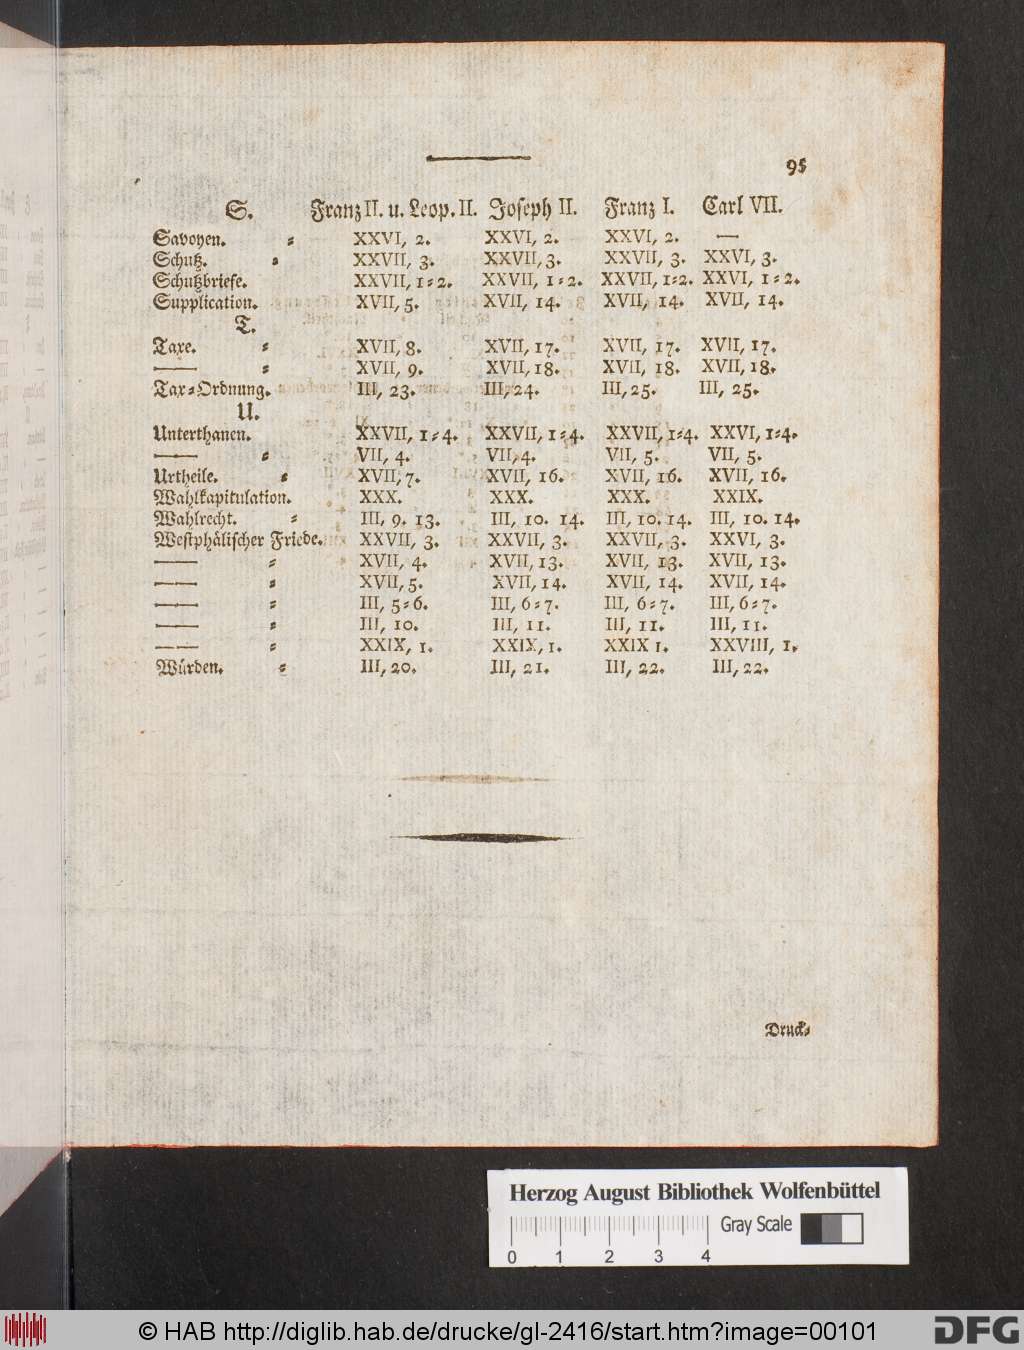 95
S. Franz II. u. Leop. II. Joseph II. Franz I. Carl VII.
Savoyen. ⸗ XXVI, 2. XXVI, 2. XXVI, 2. —
Schutz. ⸗ XXVII, 3. XXVII, 3. XXVII, 3. XXVI, 3.
Schutzbriefe. XXVII, 1⸗2. XXVII, 1⸗2. XXVII, 1⸗2. XXVI, 1⸗2.
Supplication. XVII, 5. XVII, 14. XVII, 14. XVII, 14.
T.
Taxe. ⸗ XVII, 8. XVII, 17. XVII, 17. XVII, 17.
— ⸗ XVII, 9. XVII, 18. XVII, 18. XVII, 18.
Tax⸗Ordnung. III, 23. III, 24. III, 25. III, 25.
U.
Unterthanen. XXVII, 1⸗4. XXVII, 1⸗4. XXVII, 1⸗4. XXVI, 1⸗4.
— ⸗ VII, 4. VII, 4. VII, 5. VII, 5.
Urtheile. ⸗ XVII, 7. XVII, 16. XVII, 16. XVII, 16.
Wahlkapitulation. XXX. XXX. XXX. XXIX.
Wahlrecht. ⸗ III, 9. 13. III, 10. 14. III, 10. 14. III, 10. 14.
Westphälischer Friede. XXVII, 3. XXVII, 3. XXVII, 3. XXVI, 3.
— ⸗ XVII, 4. XVII, 13. XVII, 13. XVII, 13.
— ⸗ XVII, 5. XVII, 14. XVII, 14. XVII, 14.
— ⸗ III, 5⸗6. III, 6⸗7. III, 6⸗7. III, 6⸗7.
— ⸗ III, 10. III, 11. III, 11. III, 11.
— ⸗ XXIX, 1. XXIX, 1. XXIX 1. XXVIII, 1.
Würden. ⸗ III, 20. III, 21. III, 22. III, 22.
Druck⸗
Herzog August Bibliothek Wolfenbüttel
Gray Scale
0 1 2 3 4
© HAB http://diglib.hab.de/drucke/gl-2416/start.htm?image=00101
DFG